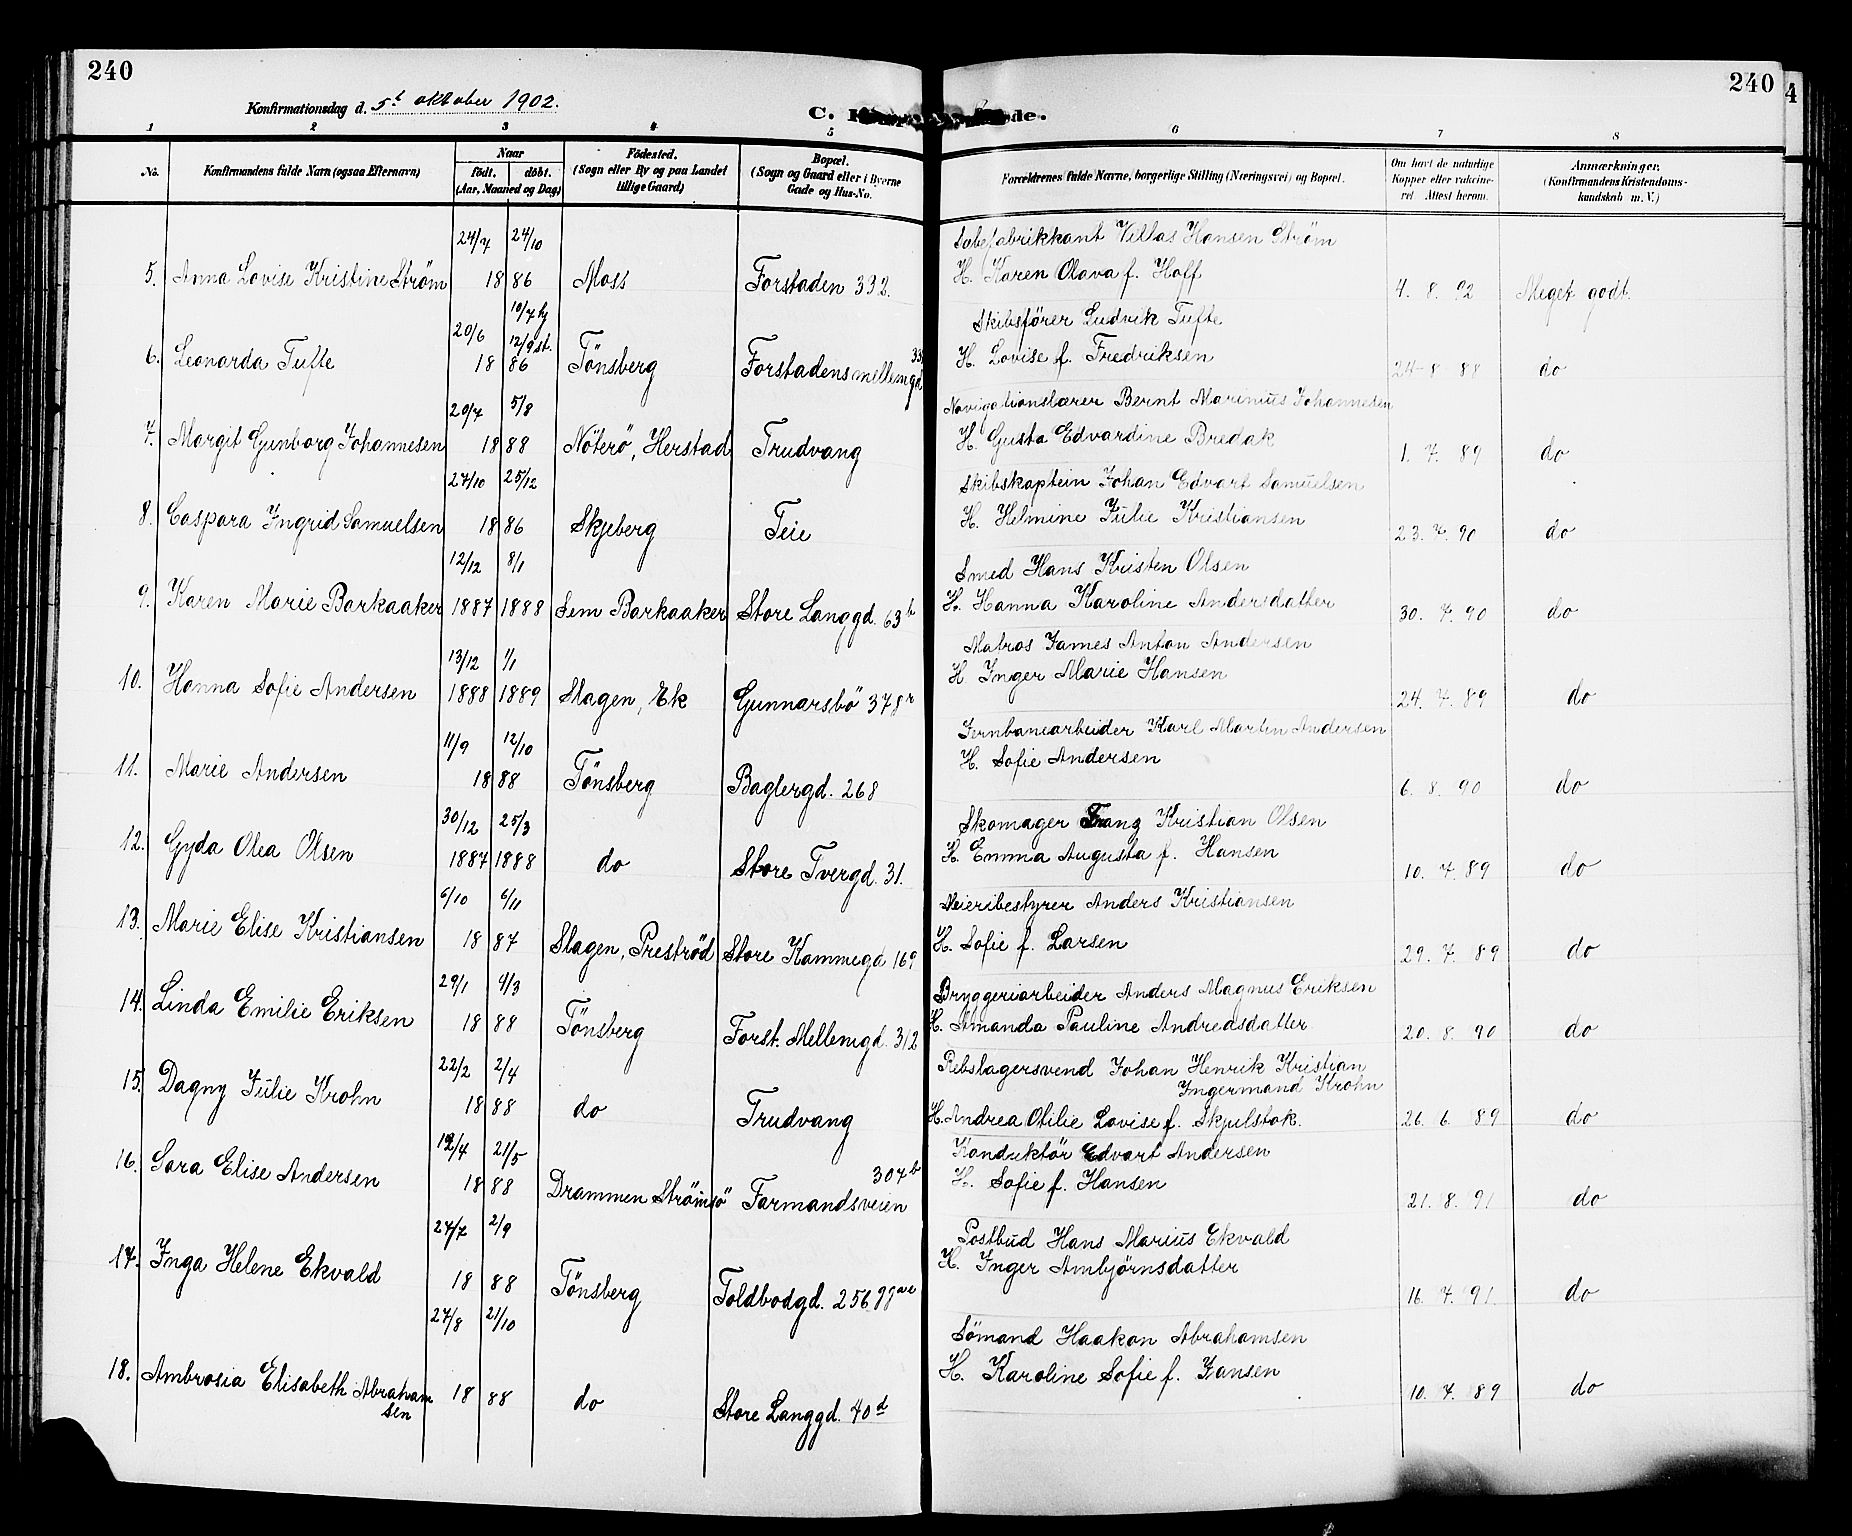 240
240
Konfirmationsdag d. 5t oktober 1902.
C. K de.
1 2 3 4 5 6 7 8
No. Konfirmandens fulde Navn (ogsaa Efternavn) Naar födt. döbt. (Aar, Maaned og Dag) Födested. (Sogn eller By og paa Landet tillige Gaard) Bopæl. (Sogn og Gaard eller i Byerne Gade og Hus-No. Forældrenes fulde Navne, borgerlige Stilling (Næringsvei) og Bopæl. Om havt de naturlige Kopper eller vaccineret. Attest herom. Anmærkninger. (Konfirmandens Kristendomskundskab m. V.)
24/7 24/10 Sæbefabrikkant Villas Hansen Ström
5. Anna Lovise Kristine Ström 18 86 Moss Forstaden 332. H. Karen Olava f. Hoff 4. 8. 92 Meget godt.
20/6 10/7 hj 12/9 st. Skibsförer Ludvik Tufte
6. Leonarda Tufte 18 86 Tönsberg Forstadensmellemgd H. Lovise f. Fredriksen 24 8 88 do
20/7 5/8 Navigationslærer Bernt Marinius Johannesen
7. Margit Gunborg Johannesen 18 88 Nöterö, Herstad Trudvang H. Gusta Edvardine Bredak 1. 7. 89 do
27/10 25/12 Skibskaptein Johan Edvart Samuelsen
8. Caspara Ingrid Samuelsen 18 86 Skjeberg Teie H. Helmine Julie Kristiansen 23. 7. 90 do
12/12 8/1 Smed Hans Kristen Olsen
9. Karen Marie Barkaaker 1887 1888 Sem Barkaaker Store Langgd. 63b H. Hanna Karoline Andersdatter 30. 7. 90 do
13/12 1/1 Matros James Anton Andersen
10. Hanna Sofie Andersen 1888 1889 Slagen, Ek Gunnarsbö 378r H Inger Marie Hansen 24. 7. 89 do
11/9 12/10 Jernbanearbeider Karl Martin Andersen
11. Marie Andersen 18 88 Tönsberg Baglergd. 268 H. Sofie Andersen 6. 8. 90 do
30/12 25/3 Skomager Franz Kristian Olsen
12. Gyda Olea Olsen 1887 1888 do Store Tvergd. 31. H. Emma Augusta f. Hansen 10. 7. 89 do
6/10 6/11 Meieribestyrer Anders Kristiansen
13. Marie Elise Kristiansen 18 87 Slagen, Preströd Store Kammegd 169 H. Sofie f. Larsen 29. 7. 89 do
29/1 4/3 Bryggeriarbeider Anders Magnus Eriksen
14. Linda Emilie Eriksen 18 88 Tönsberg Forst. Mellemgd. 312 H. Amanda Pauline Andreasdatter 20. 8. 90 do
22/2 2/4 Rebslagersvend Johan Henrik Kristian
Ingermand Krohn
15. Dagny Julie Krohn 18 88 do Trudvang H. Andrea Otilie Lovise f. Skjulstok. 26. 6. 89 do
19/4 21/5 Konduktör Edvart Andersen
16. Sara Elise Andersen 18 88 Drammen Strömsö Farmandsveien 307b H. Sofie f. Hansen 21. 8. 91 do
27/7 2/9 Postbud Hans Marius Ekvald
17. Inga Helene Ekvald 18 88 Tönsberg Toldbodgd. 256 H. Inger Ambjörnsdatter 16. 7. 91. do
27/8 21/10 Sömand Haakon Abrahamsen
18. Ambrosia Elisabeth Abraham 18 88 do Store Langgd. 40d H. Karoline Sofie f. Jansen 10. 7. 89 do
sen